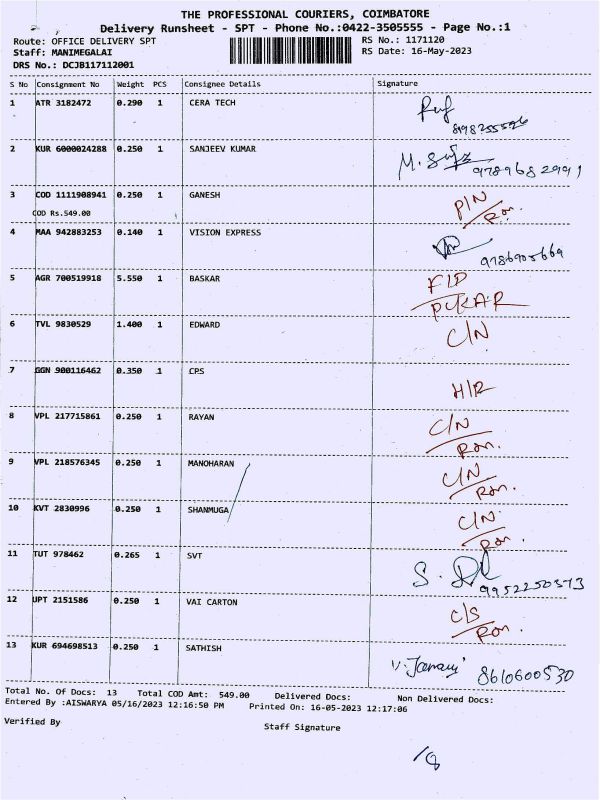 THE PROFESSIONAL COURIERS, COIMBATORE
Delivery Runsheet - SPT - Phone No.:0422-3505555 - Page No.:1
Route: OFFICE DELIVERY SPT RS No.: 1171120
Staff: MANIMEGALAI RS Date: 16-May-2023
DRS No.: DCJB117112001
S No Consignment No Weight PCS Consignee Details Signature
1 ATR 3182472 0.290 1 CERA TECH
2 KUR 6000024288 0.250 1 SANJEEV KUMAR
9789682991
3 COD 1111908941 0.250 1 GANESH P/N
COD Rs.549.00
4 MAA 942883253 0.140 1 VISION EXPRESS
9786905669
5 AGR 700519918 5.550 1 BASKAR F/D
6 TVL 9830529 1.400 1 EDWARD C/N
7 GGN 900116462 0.350 1 CPS
H/R
8 VPL 217715861 0.250 1 RAYAN C/N
9 VPL 218576345 0.250 1 MANOHARAN C/N
10 KVT 2830996 0.250 1 SHANMUGA C/N
11 TUT 978462 0.265 1 SVT
9952250373
12 UPT 2151586 0.250 1 VAI CARTON C/S
13 KUR 694698513 0.250 1 SATHISH
8610600530
Total No. Of Docs: 13 Total COD Amt: 549.00 Delivered Docs: Non Delivered Docs:
Entered By :AISWARYA 05/16/2023 12:16:50 PM Printed On: 16-05-2023 12:17:06
Verified By Staff Signature